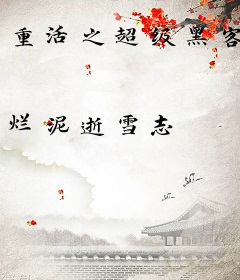 重活之超级黑客
烂泥逝雪志